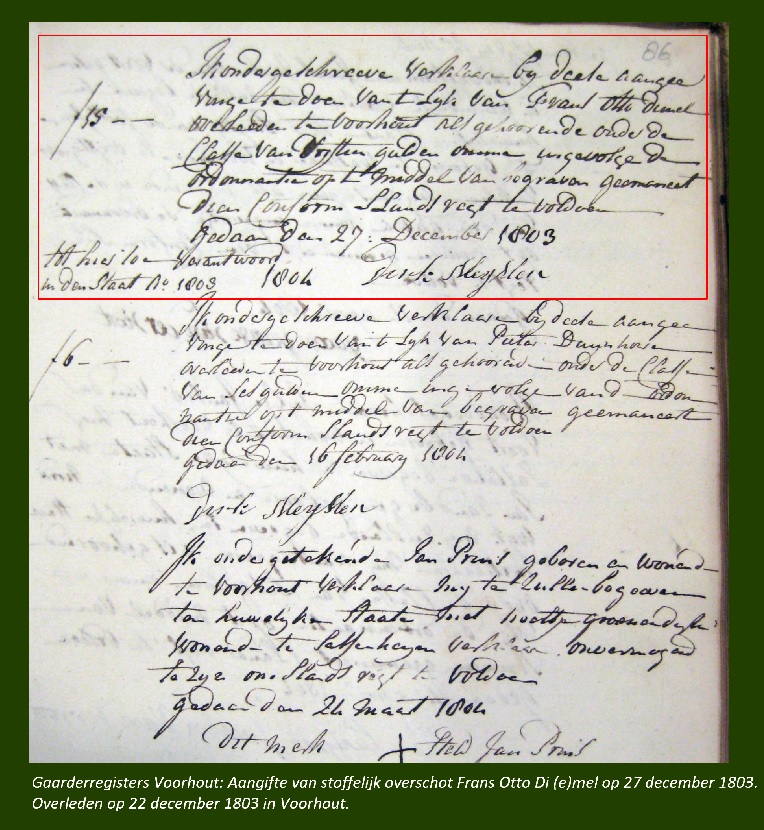 86
Ik ondergeschreeve verklaare by deese aangee
vinge te doen van t Lyk van Frans Otto dimel
overleeden te voorhout als gehoorende onder de
Classe van Vyftien gulden omme ingevolge de
ordonnantie op t middel van begraven geemaneert
dien Conform S'Lands regt te voldoen
f 15 - —
Gedaan den 27: December 1803
tot hier toe verantwoord
in den Staat Ao 1803
1804
Dirk
Ik ondergeschreeve verklaare by deese aangee
vinge te doen van t Lyk van Pieter
overleeden te voorhout als gehoorende onder de Classe
van ses gulden omme inge volge van d ordon
nantie op t middel van begraven geemaneert
dien Conform S'lands regt te voldoen
f 6 - —
gedaan den 16 february 1804
Dirk
Ik ondergetekende Jan Pruis geboren en wonend
te voorhout verklaare my te zullen begeeven
ten huwelyken Staate met
wonende te Sassenheym verklaare onvermogend
te zyn om S'lands regt te voldoen
gedaan den 24 maart 1804
Dit merk + steld Jan Pruis
Gaarderregisters Voorhout: Aangifte van stoffelijk overschot Frans Otto Di (e)mel op 27 december 1803.
Overleden op 22 december 1803 in Voorhout.